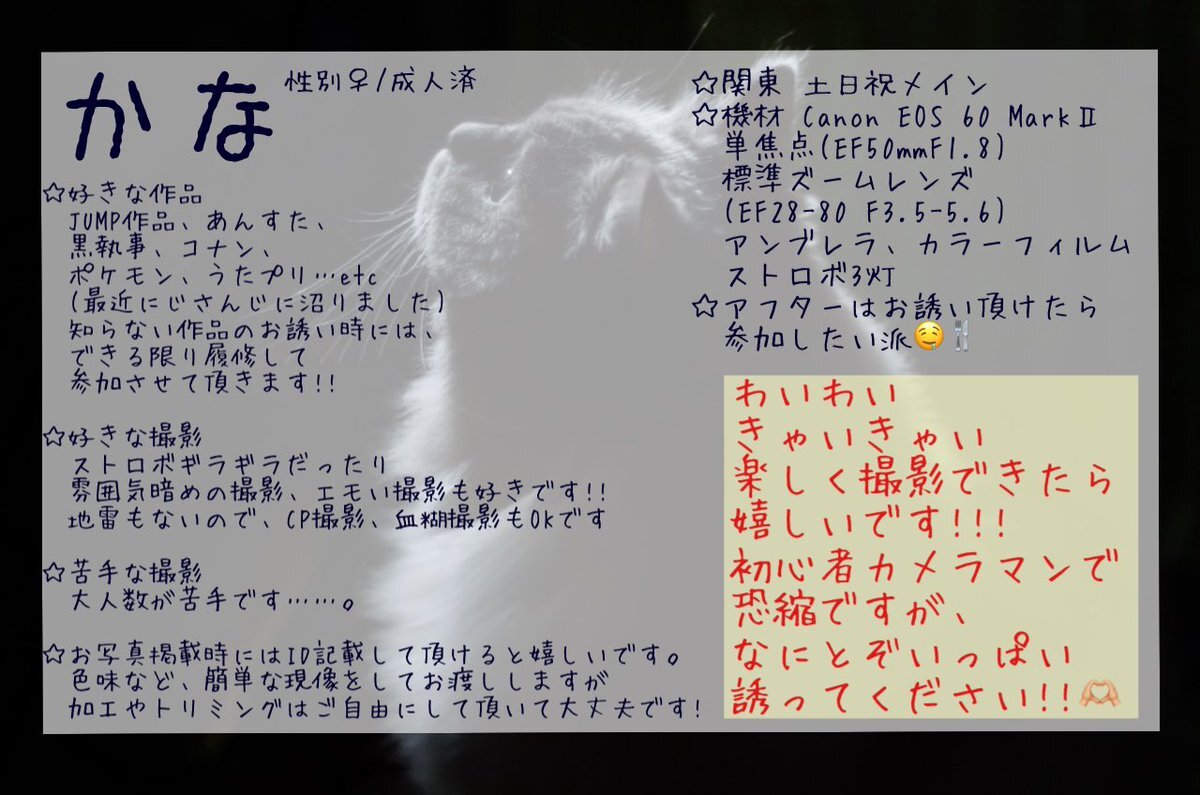 かな
性別♀/成人済
☆好きな作品
JUMP作品、あんすた、
黒執事、コナン、
ポケモン、うたプリ…etc
(最近にじさんじに沼りました)
知らない作品のお誘い時には、
できる限り履修して
参加させて頂きます!!
☆好きな撮影
ストロボギラギラだったり
雰囲気暗めの撮影、エモい撮影も好きです!!
地雷もないので、CP撮影、血糊撮影もOKです
☆苦手な撮影
大人数が苦手です……。
☆お写真掲載時にはID記載して頂けると嬉しいです。
色味など、簡単な現像をしてお渡ししますが
加工やトリミングはご自由にして頂いて大丈夫です!
☆関東 土日祝メイン
☆機材 Canon EOS 6D MarkⅡ
単焦点(EF50mmF1.8)
標準ズームレンズ
(EF28-80 F3.5-5.6)
アンブレラ、カラーフィルム
ストロボ3灯
☆アフターはお誘い頂けたら
参加したい派🤤🍴
わいわい
きゃいきゃい
楽しく撮影できたら
嬉しいです!!!
初心者カメラマンで
恐縮ですが、
なにとぞいっぱい
誘ってください!!🫶🏻